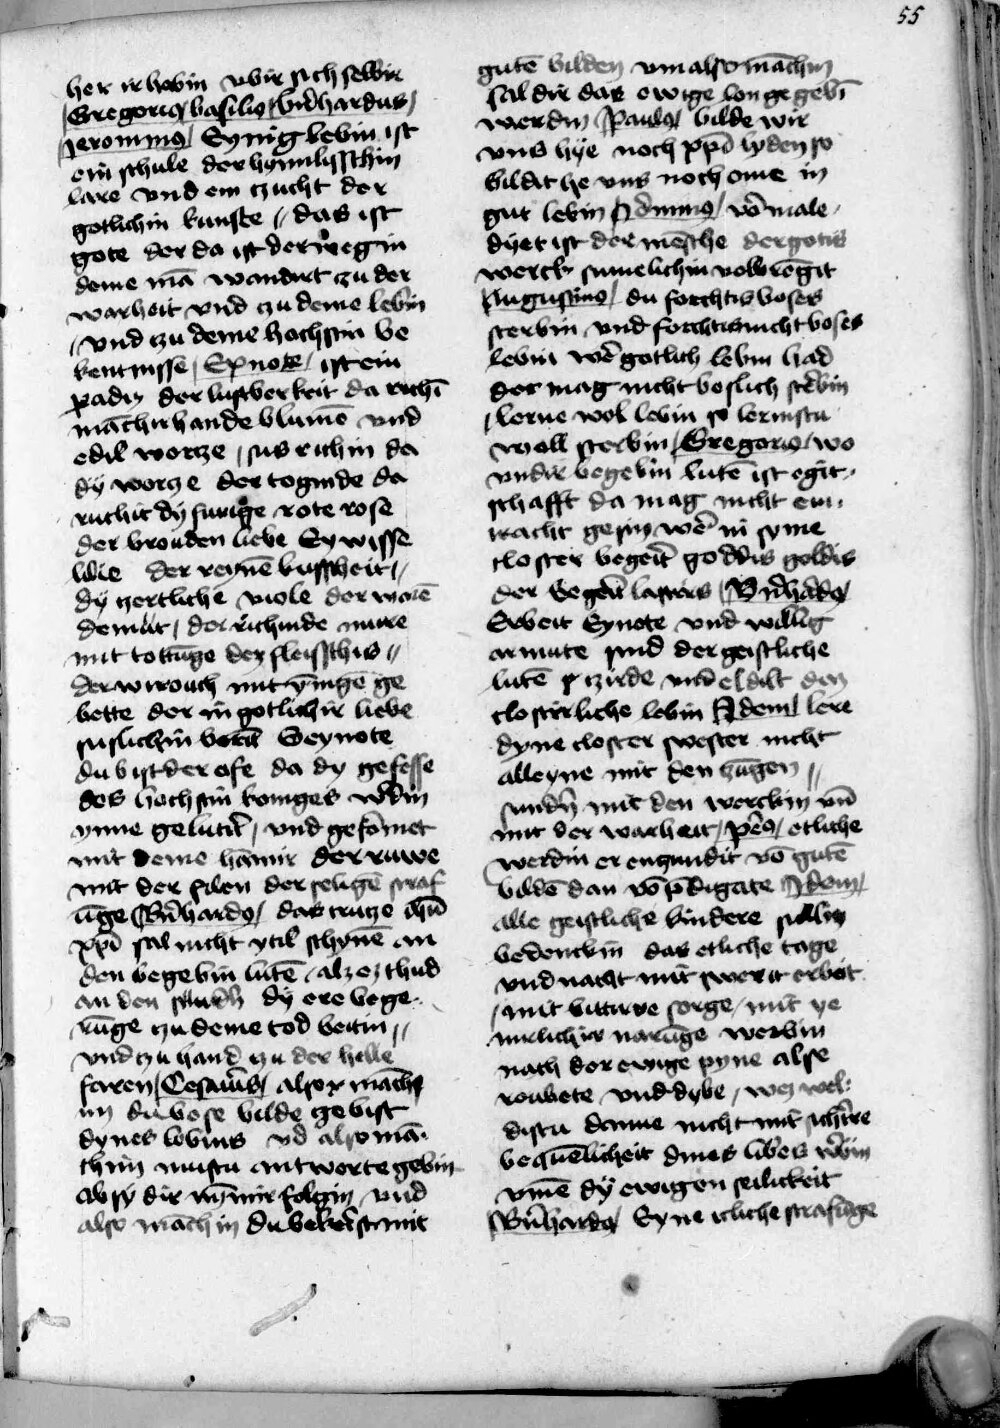 55
her ir hebin vbir sich selbir
Gregorius basilius b̄nhardus
Jeronimus Eynig lebin ist
ein schule der hymilisschin
lare vnd ein zucht der
gotlichin kunste // das ist
gote der da ist der weg in
deme mā wandirt zu der
warheit vnd zu deme lebin
/ vnd zu deme hochstin be
kentnisse / Eynote / ist ein
padiz der lustberkeit da richī
māchirhande blumē vnd
edil wortze / sus richin da
dy worcze der togunde da
ruchit dy furige rote rose
der brouden liebe Ey wisse
lilie der reynē kuscheit //
dy zertliche viole der warē
demut / der richinde mirre
mit tottūge dez fleisschis //
der wirouch mit ynnigē ge
bette der in gotlichir liebe
suslichin bornit Eeynote
du bist der ofe da dy gefesse
des hochstin koniges w̄din
ynne gelutirt / vnd gefōmet
mit deme hāmir der ruwe
mit der filen der seligē straf
ūge B̄nhardus / das crutze ihū
xpī sal nicht ytil schynē an
den begebin lutē / alz ez thud
an den sundīn dy ere bege
rūge zu deme tod beitin //
vnd zu hand zu der helle
faren / Cesarius / also māchī
in du bose bilde gebist
dynes lebins vnd also mā
chim mustu antworte gebin
ab sy dir nym̄mir folgin / vnd
also māchin du bekerist mit
gutē bilden vm also māchin
sal dir das ewige lon gegebī
werdin Paulus bilde wir
vns hye noch xpī lyden so
bildit he vns noch ome in
gut lebin Jeronimus / vōmale
dyet ist der mēsche der gotis
werck sumelichin volbrēgit
Augustinus / du forchtis boses
sterbin vnd forchtis nicht boses
lebin wer gotlich lebin had
der mag nicht boslich sterbin
/ lerne wol lebin so lernistu
woll sterbin / Gregorius / wo
vndir begebin lutē ist egin
schafft da mag nicht ein
tracht gesin wer in syme
closter begert goddis goldis
der begert lasters / B̄nhardus
Erbeit Eynote vnd willig
armute sind der geistliche
lutē gezirde vnd eldilt daz
closterliche lebin Idem / lere
dyne closter swester nicht
alleyne mit den zūgen //
sundīn mit den werckin vn̄
mit der warheit / Petrus / etliche
werdin er enzundit vō gutē
bildē dan vō p̄digate Idem
alle geistliche kindere sullin
bedenckin das etliche tage
vnd nacht mit swerir erbeit
/ mit bittirre sorge / mit ye
mirlichir narūge werbin
nach der ewige pyne alse
roubere vnd dybe / wez wel
distu danne nicht mit sichirre
bequēlicheit dines libes w̄bin
vmē dy ewigen selickeit
B̄nhardus Eyne itliche strafūge